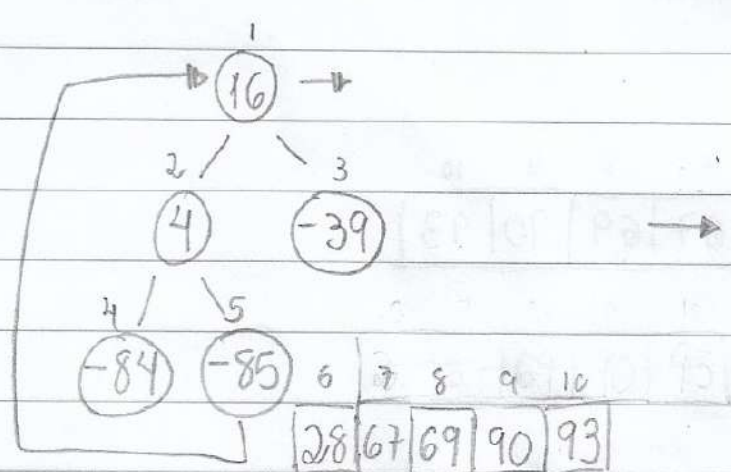 1
16
2 3
4 -39
4 5
-84 -85 6 7 8 9 10
28 67 69 90 93